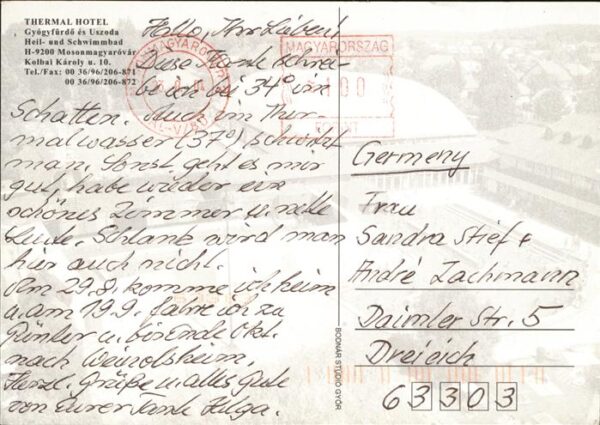 THERMAL HOTEL
Gyógyfürdő és Uszoda
Heil- und Schwimmbad
H-9200 Mosonmagyaróvár
Kolbai Károly u. 10.
Tel./Fax: 00 36/96/206-871
00 36/96/206-872
Hallo, Ihr Lieben!
Diese Karte schrei-
be ich bei 34° im
Schatten. Auch im Ther-
malwasser (37°) schwitzt
man. Sonst geht es mir
gut, habe wieder ein
schönes Zimmer u. nette
Leute. Schlank wird man
hier auch nicht.
Am 29.8. komme ich heim
u. am 19.9. fahre ich zu
Günter u. bis Ende Okt.
nach
Herzl. Grüße u. alles Gute
von Eurer Tante Helga.
MAGYARORSZAG
Germany
Frau
Sandra Stief +
André Zachmann
Daimler Str. 5
Dreieich
63303
BODNÁR STÚDIÓ GYŐR